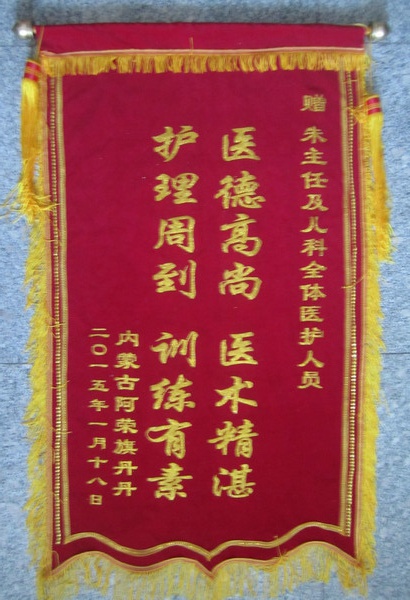 赠 朱主任及儿科全体医护人员
医德高尚 医术精湛
护理周到 训练有素
内蒙古阿荣旗丹丹
二〇一五年一月十八日